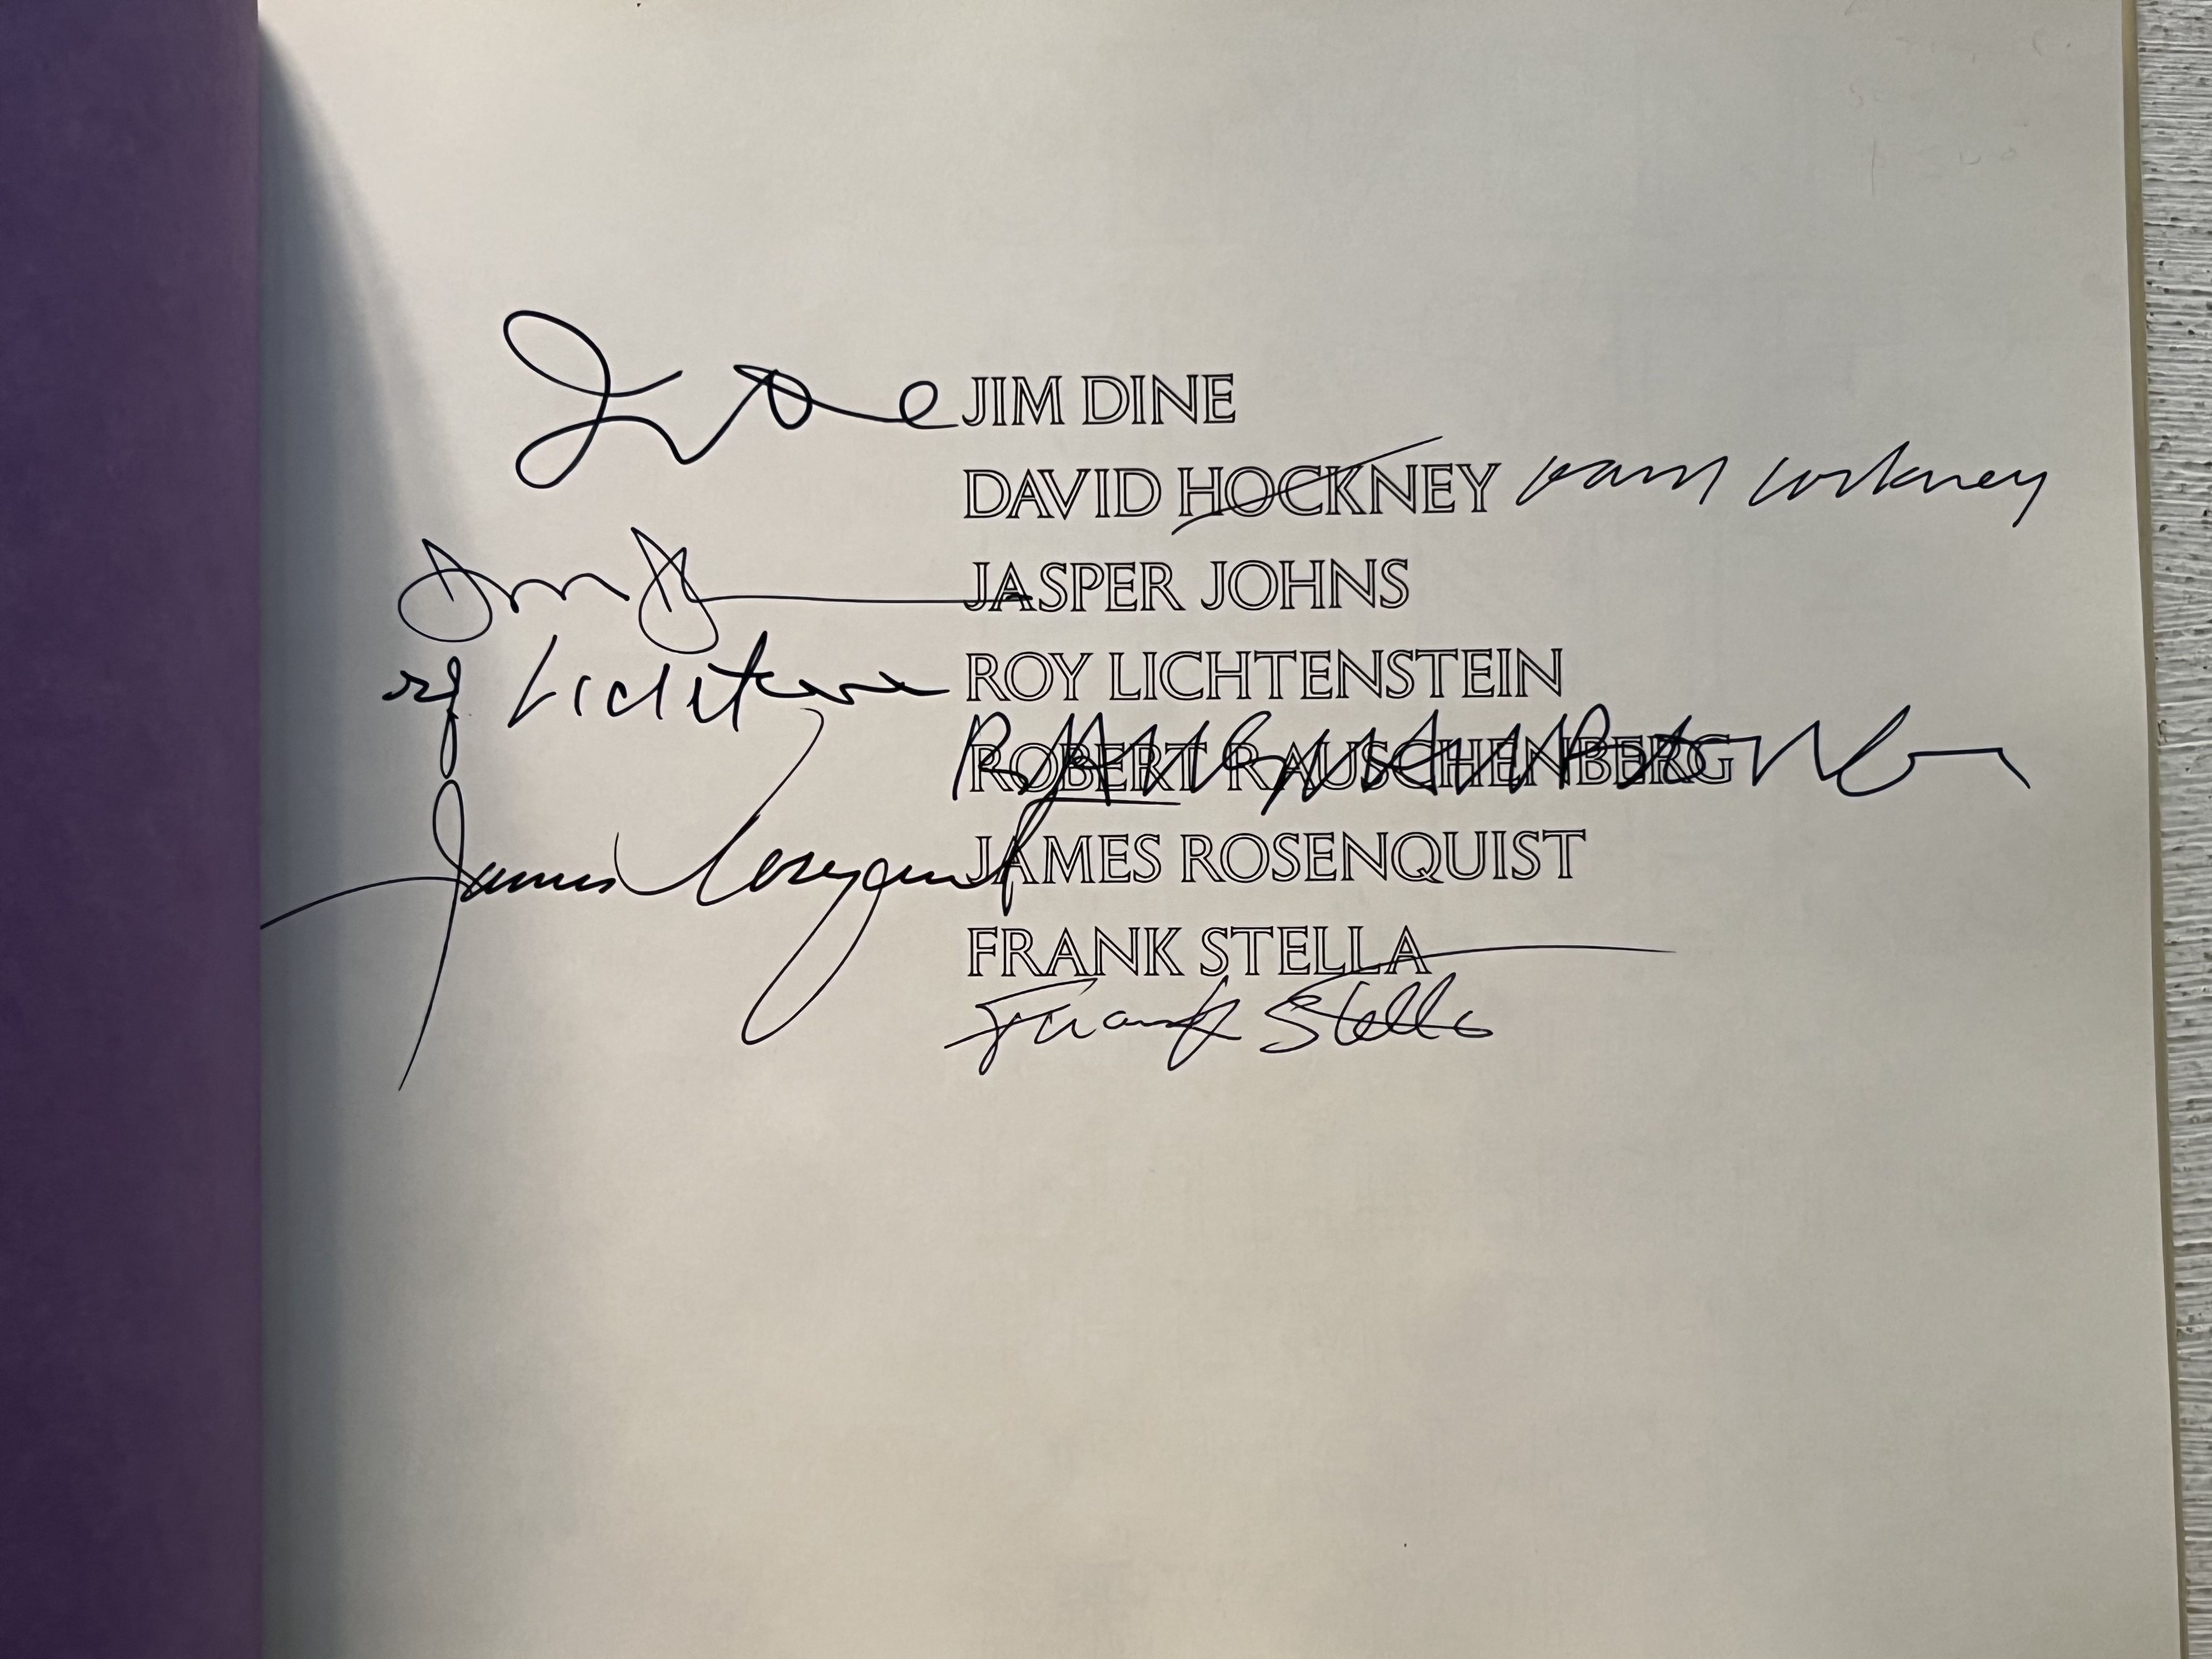 Jim Dine JIM DINE
DAVID HOCKNEY David Hockney
JASPER JOHNS
roy Lichtenstein ROY LICHTENSTEIN
ROBERT RAUSCHENBERG
James Rosenquist JAMES ROSENQUIST
FRANK STELLA
Frank Stella